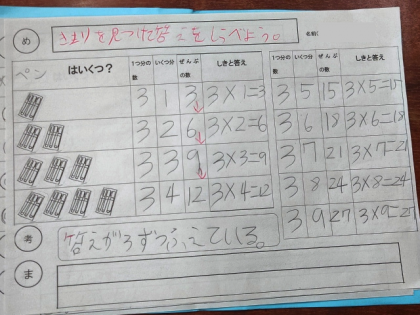 め きまりを見つけて答えをしらべよう。 名前(
ペン はいくつ? 1つ分の数 いくつ分 ぜんぶの数 しきと答え
3 1 3 3×1=3
3 2 6 3×2=6
3 3 9 3×3=9
3 4 12 3×4=12
1つ分の数 いくつ分 ぜんぶの数 しきと答え
3 5 15 3×5=15
3 6 18 3×6=18
3 7 21 3×7=21
3 8 24 3×8=24
3 9 27 3×9=27
考 答えが3ずつふえている。
ま